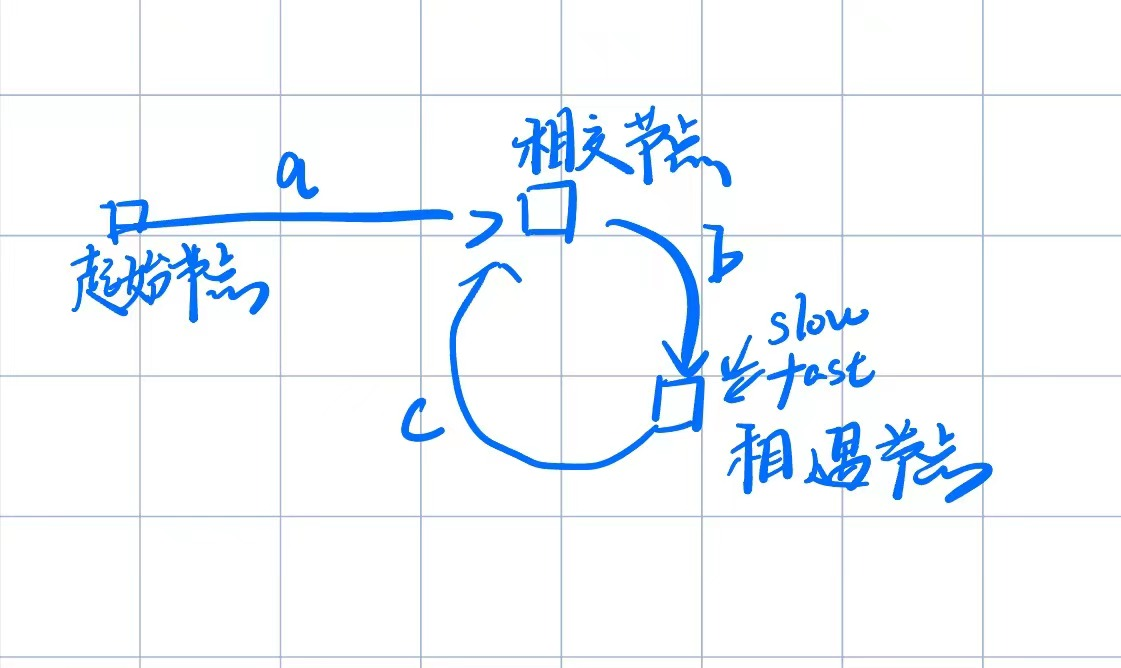 相交节点
a
起始节点
b
slow
fast
c
相遇节点